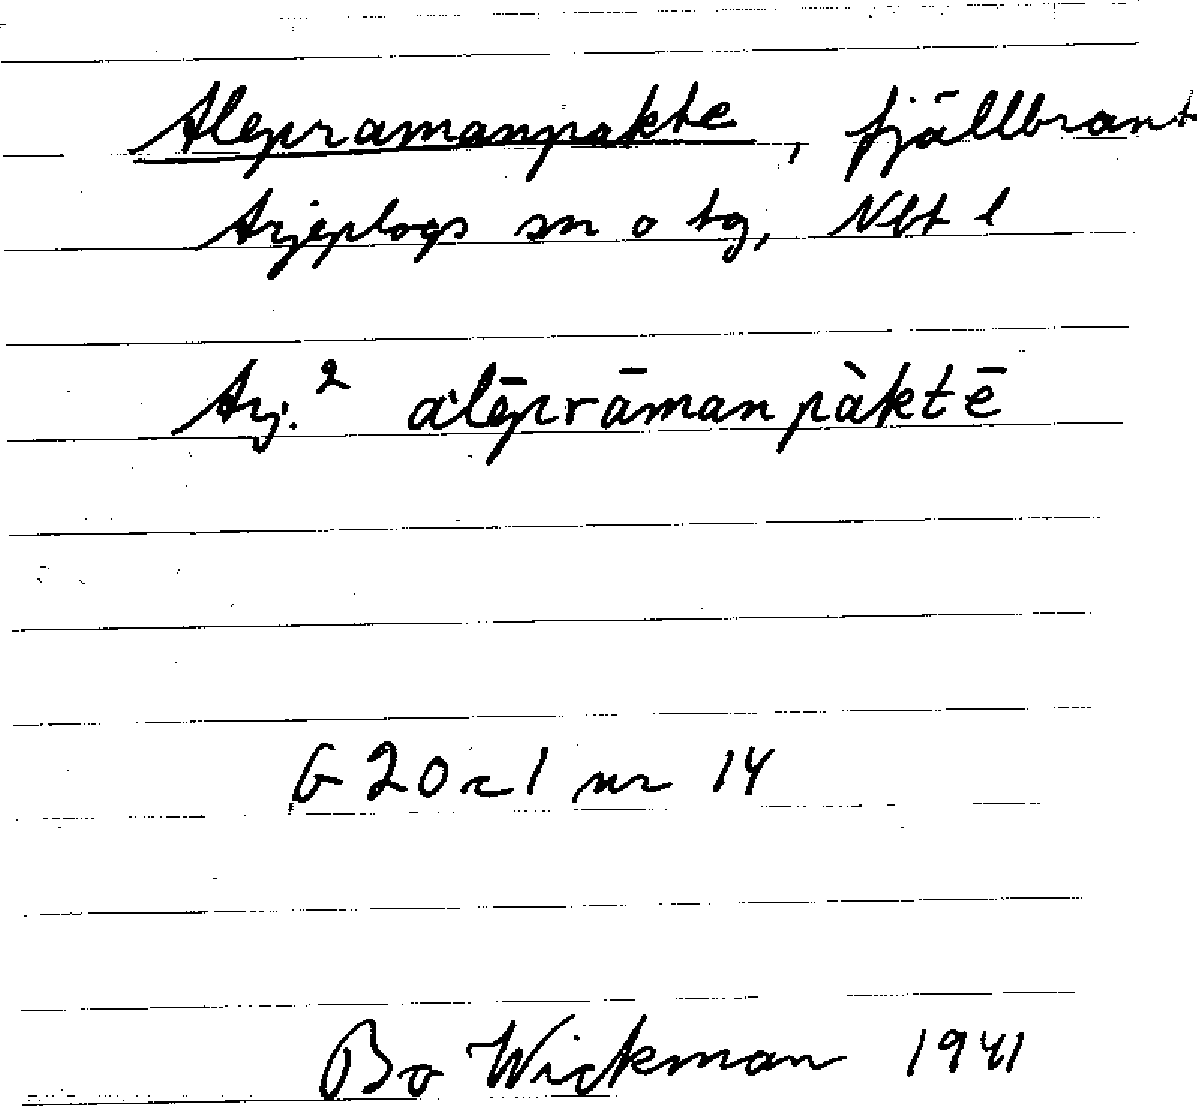 Alepramanpakte, fjällbrant
Arjeplogs sn o tg, Nbt l
Arj.² a'lēprāmanpàktē
G 20 c 1 nr 14
Bo Wickman 1941